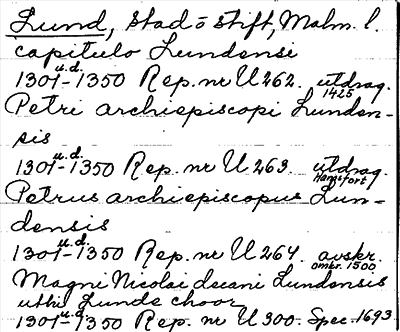 Lund, Stad o Stift, Malm. l.
capitulo Lundensi
u.d.
1301-1350 Rep. nr U 262. utdrag.
1425
Petri archiepiscopi Lunden-
sis
u.d.
1301-1350 Rep. nr U 263. utdrag.
Hamsfort
Petrus archiepiscopus Lun-
densis
u.d.
1301-1350 Rep. nr U 264. avskr.
omkr. 1500
Magni Nicolai decani Lundensis
uthi Lunde choor
u.d.
1301-1350 Rep. nr U 300. Spec. 1693